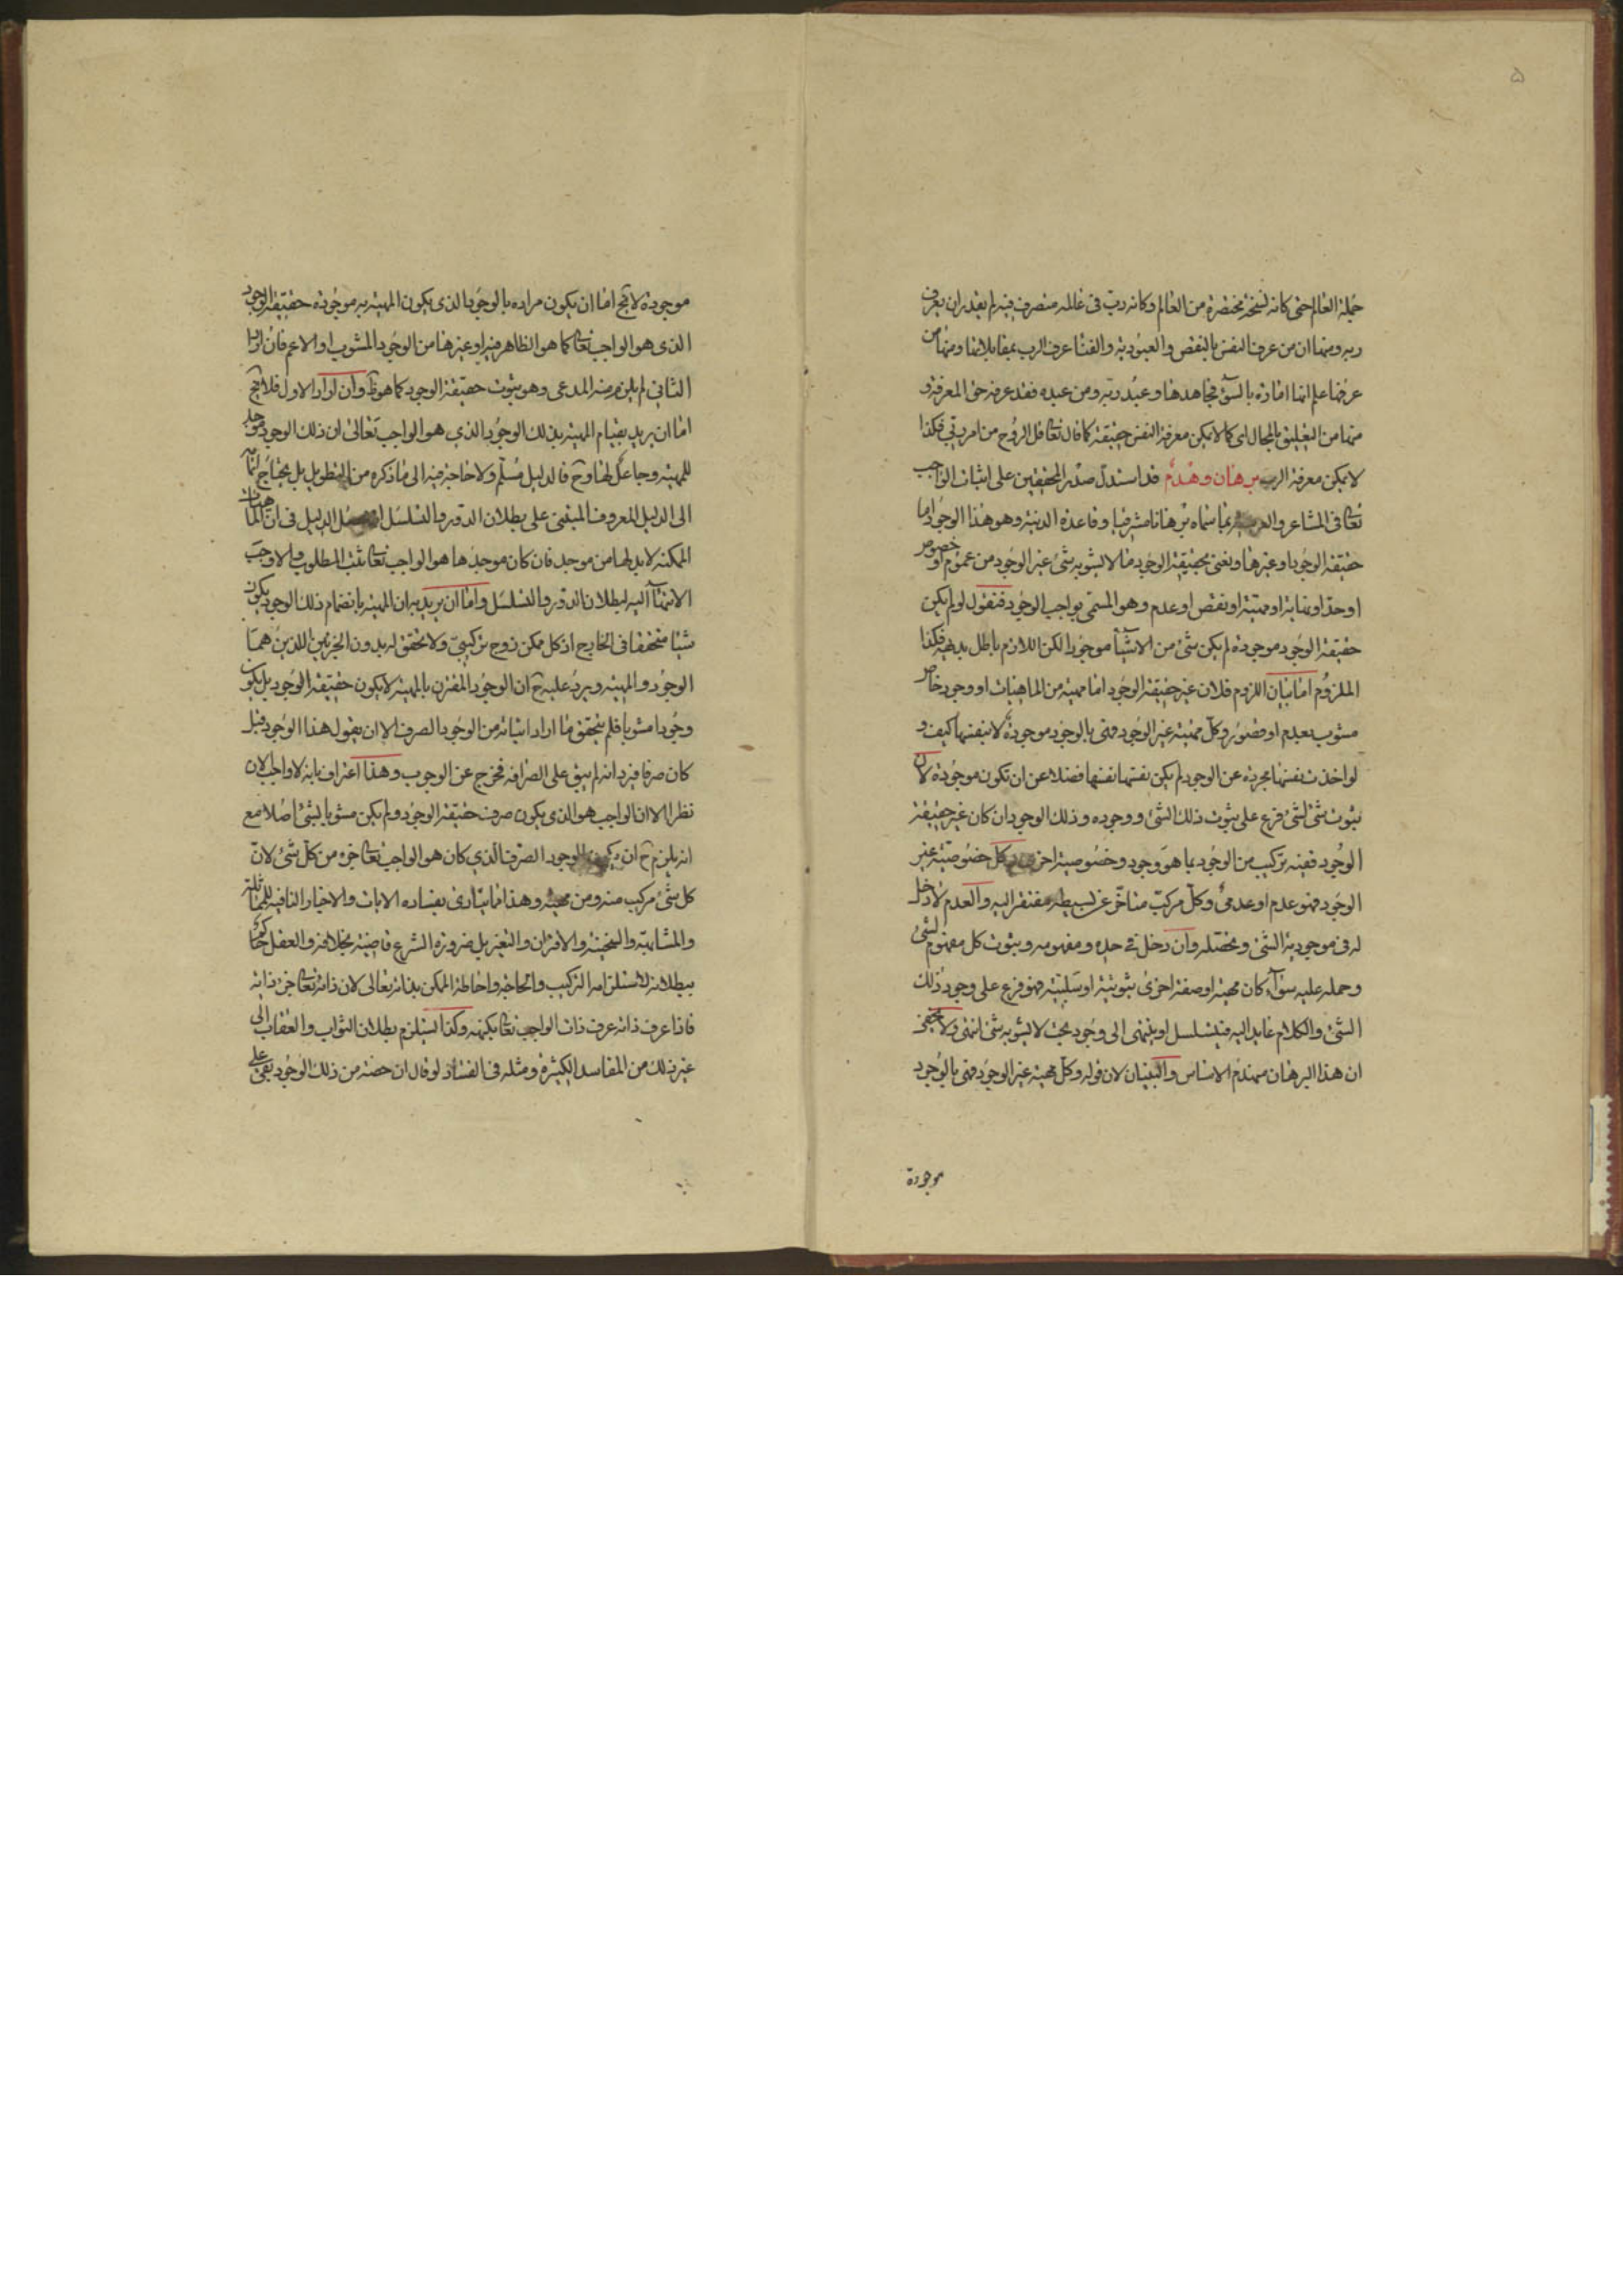 ۵
جملة العالم حتى كانه نسخة مختصرة من العالم وكانه رب فى عالمه متصرف فيه لم يقدر ان يعرف
ربه ومنها ان من عرف النفس بالنقص والعبودية والفنا عرف الرب بمقابلاتها ومنها من
عرفها علم انها امارة بالسوء فجاهدها وعبد ربه ومن عبده فقد عرفه حق المعرفة و
منها من التعليق بالمحال اى كما لا يمكن معرفة النفس حقيقة كما قال تعا قل الروح من امر ربى فكذا
لا يمكن معرفة الرب برهان وهدم قد استدل صدر المحققين على اثبات الواجب
تعا فى المشاعر و بما سماه برهانا مشرقيا وقاعدة لدنية وهو هذا الوجود اما
حقيقة الوجود او غيرها ونعنى بحقيقة الوجود ما لا يشوبه شئ غير الوجود من عموم او خصوص
او حد او نهاية او مهية او نقص او عدم وهو المسمى بواجب الوجود فنقول لو لم يكن
حقيقة الوجود موجودة لم يكن شئ من الاشيآء موجودا لكن اللازم باطل بديهة فكذا
الملزوم اما بيان اللزوم فلان غير حقيقة الوجود اما مهية من الماهيات او وجود خاص
مشوب بعدم او قصور وكل مهية غير الوجود فهى بالوجود موجودة لا بنفسها كيف و
لو اخذت نفسها مجردة عن الوجود لم يكن نفسها نفسها فضلا عن ان تكون موجودة لان
ثبوت شئ لشئ فرع على ثبوت ذلك الشئ ووجوده وذلك الوجود ان كان غير حقيقة
الوجود ففيه تركيب من الوجود بما هو وجود وخصوصية اخرى وكل خصوصية غير
الوجود فهو عدم او عدمى وكل مركب متاخر عن بسيطه مفتقر اليه والعدم لا دخل
له فى موجودية الشئ وتحصله وان دخل فى حده ومفهومه وثبوت كل مفهوم لشئ
وحمله عليه سوآء كان مهية او صفة اخرى ثبوتية او سلبية فهو فرع على وجود ذلك
الشئ والكلام عايد اليه فيتسلسل او ينتهى الى وجود بحت لا يشوبه شئ انتهى ولا يخفى
ان هذا البرهان منهدم الاساس والبنيان لان قوله وكل مهية غير الوجود فهى بالوجود
موجودة
موجودة لا يخ اما ان يكون مراده بالوجود الذى يكون المهية به موجودة حقيقة الوجود
الذى هو الواجب تعا كما هو الظاهر فيه او غيرها من الوجود المشوب او الاعم فان اراد
الثانى لم يلزم منه المدعى وهو ثبوت حقيقة الوجود كما هو ظ وان اراد الاول فلا يخ
اما ان يريد بقيام المهية بذلك الوجود الذى هو الواجب تعالى ان ذلك الوجود موجد
للمهية وجاعل لها وح فالدليل مسلم ولا حاجة فيه الى ما ذكره من التطويل بل يحتاج
الى الدليل المعروف المبتنى على بطلان الدور والتسلسل الدليل فى ان الماهيات
الممكنة لا بد لها من موجد فان كان موجدها هو الواجب تعا ثبت المطلوب والا وجب
الانتهآء اليه لبطلان الدور والتسلسل واما ان يريد به ان المهية بانضمام ذلك الوجود يكون
شيئا متحققا فى الخارج اذ كل ممكن زوج تركيبى ولا تحقق له بدون الجزئين اللذين هما
الوجود والمهية ويرد عليه ح ان الوجود المقترن بالمهية لا يكون حقيقة الوجود بل يكون
وجودا مشوبا فلم يتحقق ما اراد اثباته من الوجود الصرف الا ان يقول هذا الوجود قبل
كان صرفا فيرد انه لم يبق على الصرافة فخرج عن الوجوب وهذا اعتراف بانه لا واجب الان
نظرا الا ان الواجب هو الذى يكون صرف حقيقة الوجود ولم يكن مشوبا بشئ اصلا مع
انه يلزم ح ان يكون الوجود الصرف الذى كان هو الواجب تعا جزء من كل شئ لان
كل شئ مركب منه ومن مهية وهذا مما ينادى بفساده الايات والاخبار النافية للمماثلة
والمشابهة والسنخية والاقتران والتغير بل ضرورة الشرع قاضية بخلافه والعقل حاكم
ببطلانه لاستلزامه التركيب والحاجة واحاطة الممكن بذاته تعالى لان ذاته تعا جزء ذاته
فاذا عرف ذاته عرف ذات الواجب تعا بكنهه وكذا يستلزم بطلان الثواب والعقاب الى
غير ذلك من المفاسد الكثيرة ومثله فى الفساد لو قال ان حصة من ذلك الوجود بقى على